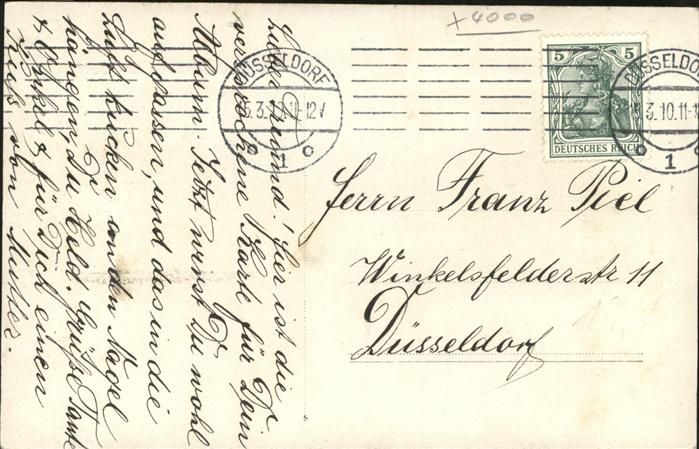 x 4000
DÜSSELDORF
3.10.11-12V
o 1 c
5 5
DEUTSCHES REICH
DÜSSELDO
3.10.11-1
o 1
Lieber Freund! hier ist die
versprochene Karte für Dein
Album. Jetzt wirst Du wohl
aufpassen, und das in die
Luft kucken an den Nagel
hangen, Du Held. Grüße Tante
& Onkel & für Dich einen
Kuß von Mutter.
Herrn Franz Piel
Winkelsfelderstr 11
Düsseldorf